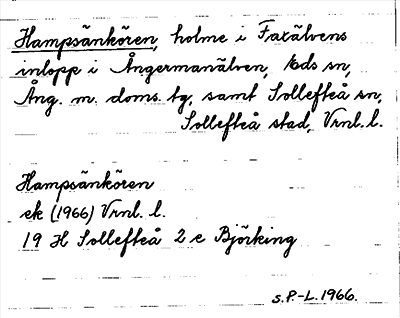 Hampsänkören, holme i Faxälvens
inlopp i Ångermanälven, Eds sn,
Ång. m. doms. tg, samt Sollefteå sn,
Sollefteå stad, Vrnl. l.
Hampsänkören
ek (1966) Vrnl. l.
19 H Sollefteå 2 c Björking
s. P.-L. 1966.